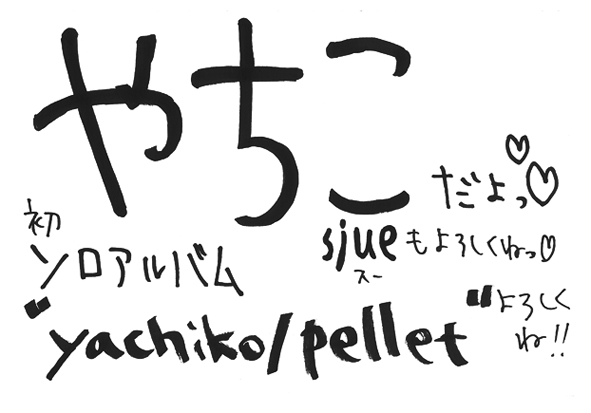 やちこ
だよっ♡♡
初
ソロアルバム
sjueもよろしくねっ♡
スー
"yachiko/pellet"
よろしく
ね!!